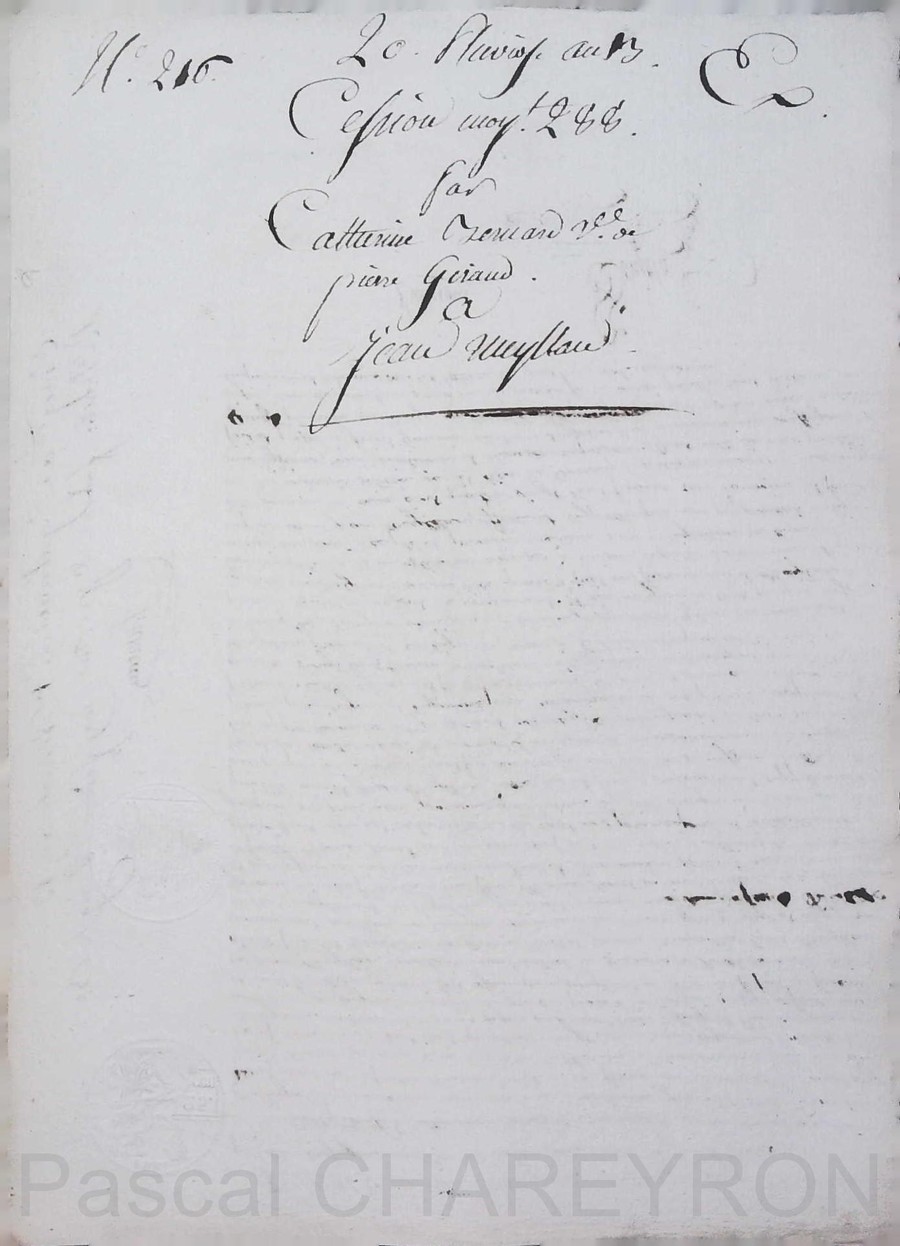 N.o 216.
20. Pluviose an 13.
Ex.
Cession moy.t 288.
par
Catterine Bernard v.e de
pierre Giraud.
a
jean
Pascal CHAREYRON